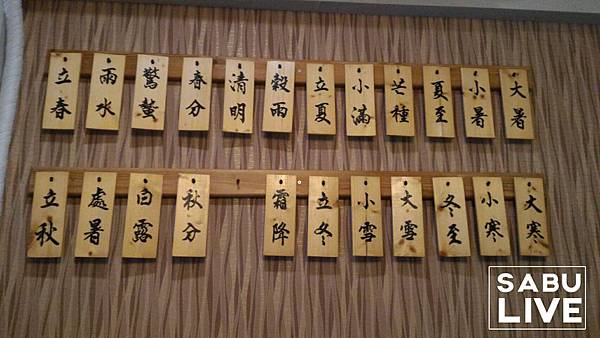 立春 雨水 驚蟄 春分 清明 穀雨 立夏 小滿 芒種 夏至 小暑 大暑
立秋 處暑 白露 秋分 霜降 立冬 小雪 大雪 冬至 小寒 大寒
SABU
LIVE